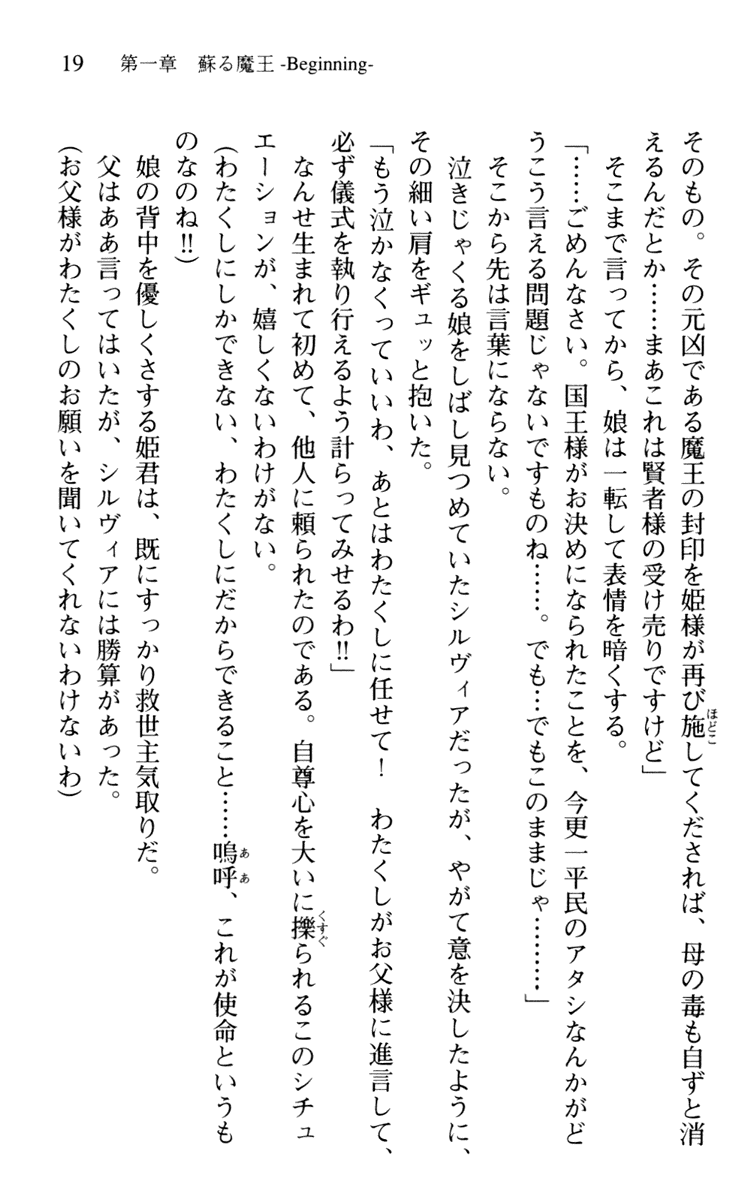 19　第一章　蘇る魔王 -Beginning-
そのもの。その元凶である魔王の封印を姫様が再び施してくだされば、母の毒も自ずと消
ほどこ
えるんだとか……まあこれは賢者様の受け売りですけど」
そこまで言ってから、娘は一転して表情を暗くする。
「……ごめんなさい。国王様がお決めになられたことを、今更一平民のアタシなんかがど
うこう言える問題じゃないですものね……。でも…でもこのままじゃ………」
そこから先は言葉にならない。
泣きじゃくる娘をしばし見つめていたシルヴィアだったが、やがて意を決したように、
その細い肩をギュッと抱いた。
「もう泣かなくっていいわ、あとはわたくしに任せて！　わたくしがお父様に進言して、
必ず儀式を執り行えるよう計らってみせるわ!!」
なんせ生まれて初めて、他人に頼られたのである。自尊心を大いに擽られるこのシチュ
くすぐ
エーションが、嬉しくないわけがない。
（わたくしにしかできない、わたくしにだからできること……嗚呼、これが使命というも
ああ
のなのね!!）
娘の背中を優しくさする姫君は、既にすっかり救世主気取りだ。
父はああ言ってはいたが、シルヴィアには勝算があった。
（お父様がわたくしのお願いを聞いてくれないわけないわ）